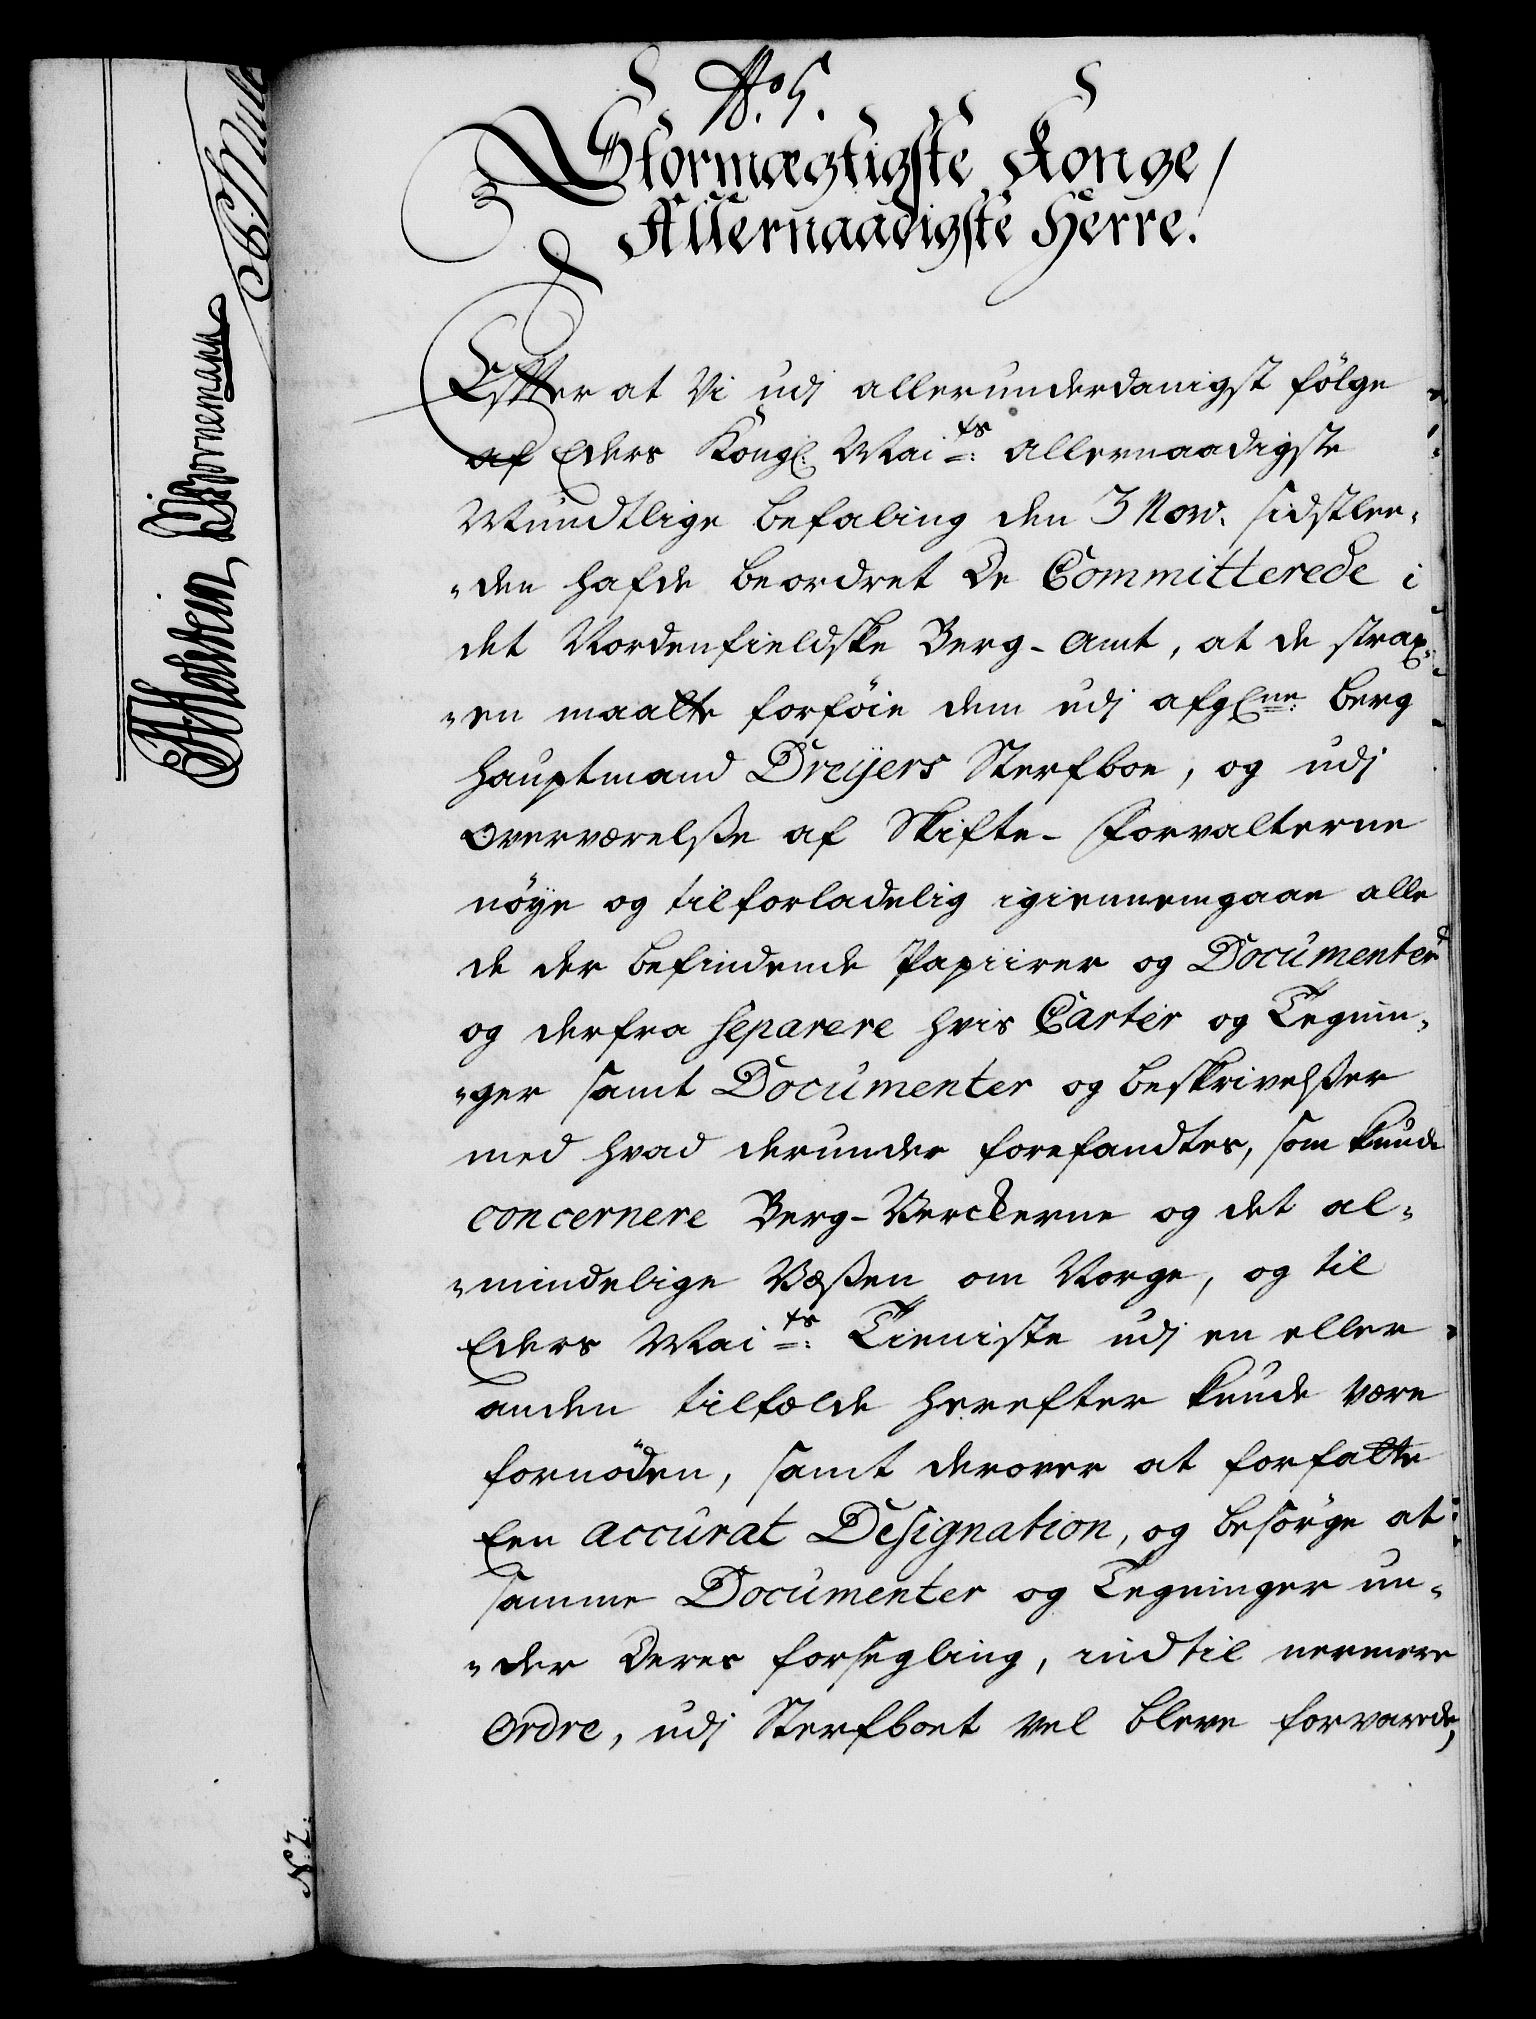 No. 5.
Stormægtigste Konge/
Allernaadigste Herre!
Efter at Vi udj allerunderdanigst fölge
af Eders Kongl: Mai ts: allernaadigste
Mundtlige befaling den 3 Nov. sidstlee-
-den hafde beordret De Committerede i
det Nordenfieldske Berg-Amt, at de strax-
-en maatte forföie dem udj afgl ne: Berg
Hauptmand Dreÿers Sterfboe, og udj
Overværelsse af Skifte-Forvalterne
nöye og tilforladelig igiennemgaae alle
de der befindende Papiirer og Documenter
og derfra separere hvis Carter og Tegnin-
-ger samt Documenter og beskrivelsser
med hvad derunder forefandtes, som kunde
concernere Berg-Verckerne og det al-
-mindelige Væssen om Norge, og til
Eders Mai ts: Tieniste udj en eller
anden tilfælde herefter kunde være
fornöden, samt derover at forfatte
Een accurat Designation, og besörge at
samme Documenter og Tegninger un-
-der Deres forsegling, indtil nermere
Ordre, udj Sterfboet vel bleve forvarede,
Bornemann
N: 2.